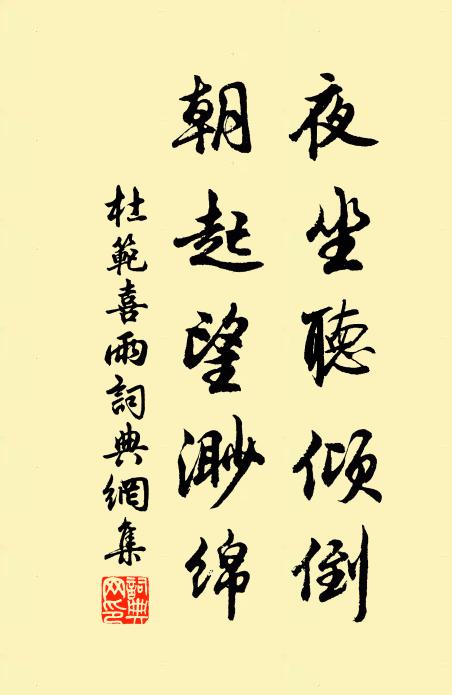 夜坐聽傾倒
朝起望渺绵
杜範喜雨詞典網集
詞典网印